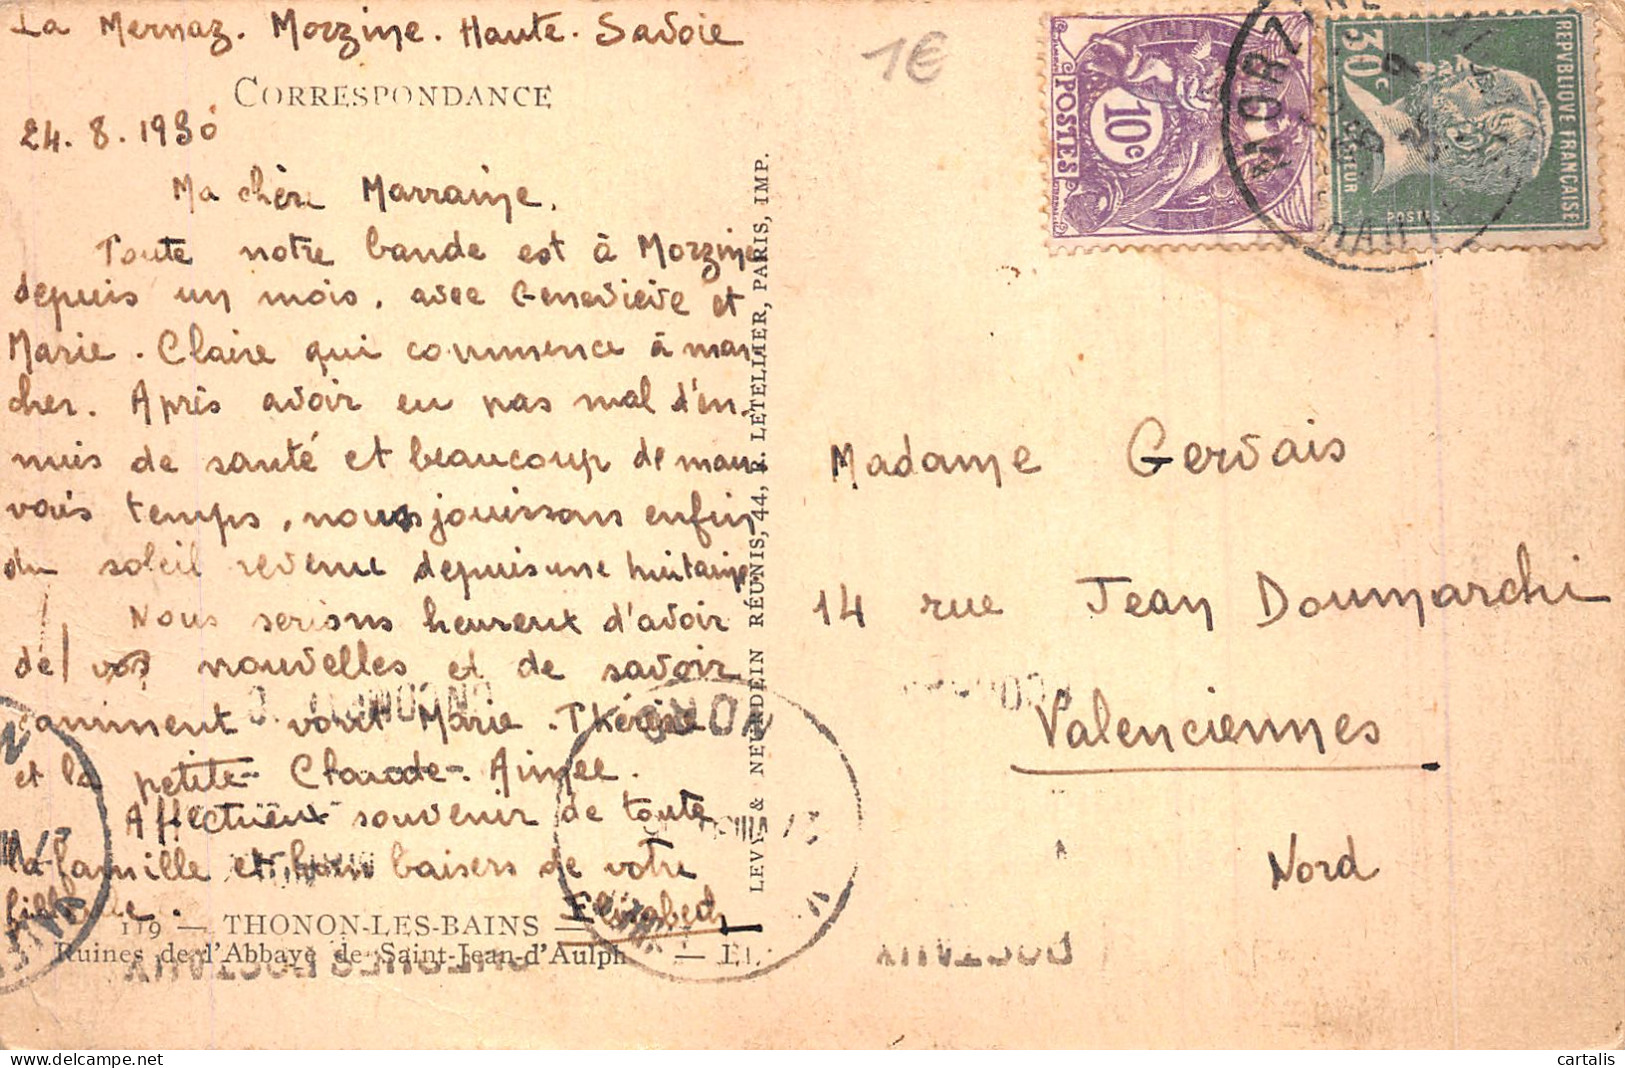 La Mernaz. Morzine. Haute. Savoie
CORRESPONDANCE
24. 8. 1930
Ma chère Marraine.
Toute notre bande est à Morzine
depuis un mois, avec Geneviève et
Marie. Claire qui commence à mar-
cher. Après avoir eu pas mal d'en-
nuis de santé et beaucoup de mau
vais temps, nous jouissons enfin
du soleil revenu depuis une huitaine
Nous serions heureux d'avoir
de vos nouvelles et de savoir
comment vont Marie-Thérèse
et la petite Claude-Aimée.
Affectueux souvenir de toute
la famille et bons baisers de votre
filleule.
Elisabeth
119 — THONON-LES-BAINS —
Ruines de l'Abbaye de Saint-Jean-d'Aulph — LL.
LEVY & NEURDEIN RÉUNIS, 44, R. LETELLIER, PARIS, IMP.
1€
10c
POSTES
30c
REPVBLIQVE FRANÇAISE
POSTES
MORZINE
Madame Gervais
14 rue Jean Doumarchi
Valenciennes
Nord
cartalis